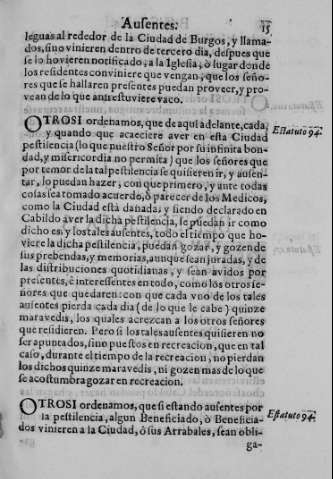 Ausentes. 15
leguas al rededor de la Ciudad de Burgos, y llama-
dos, sino vinieren dentro de tercero dia, despues que
se lo hovieren notificado, a la Iglesia, ò lugar donde
los residentes conviniere que vengan, que los seño-
res que se hallaren presentes puedan proveer, y pro-
vean de lo que ansi estuviere vaco.
OTROSI ordenamos, que de aqui adelante, cada,
y quando que acaeciere aver en esta Ciudad
Estatuto 94.
pestilencia (lo que nuestro Señor por su infinita bon-
dad, y misericordia no permita) que los señores que
por temor de la tal pestilencia se quisieren ir, y ausen-
tar, lo puedan hazer, con que primero, y ante todas
cosas sea tomado acuerdo, ò parecer de los Medicos,
como la Ciudad està dañada; y siendo declarado en
Cabildo aver la dicha pestilencia, se puedan ir como
dicho es: y los tales ausentes, todo el tiempo que ho-
viere la dicha pestilencia, puedan gozar, y gozen de
sus prebendas, y memorias, aunque sean juradas, y de
las distribuciones quotidianas, y sean avidos por
presentes, è interessentes en todo, como los otros se-
ñores que quedaren: con que cada vno de los tales
ausentes pierda cada dia (de lo que le cabe) quinze
maravedis, los quales acrezcan a los otros señores
que residieren. Pero si los tales ausentes quisieren no
ser apuntados, sino puestos en recreacion, que en tal
caso, durante el tiempo de la recreacion, no pierdan
los dichos quinze maravedis, ni gozen mas de lo que
se acostumbra gozar en recreacion.
OTROSI ordenamos, que si estando ausentes por
la pestilencia, algun Beneficiado, ò Beneficia-
Estatuto 94.
dos vinieren a la Ciudad, ò sus Arrabales, sean obli-
ga-